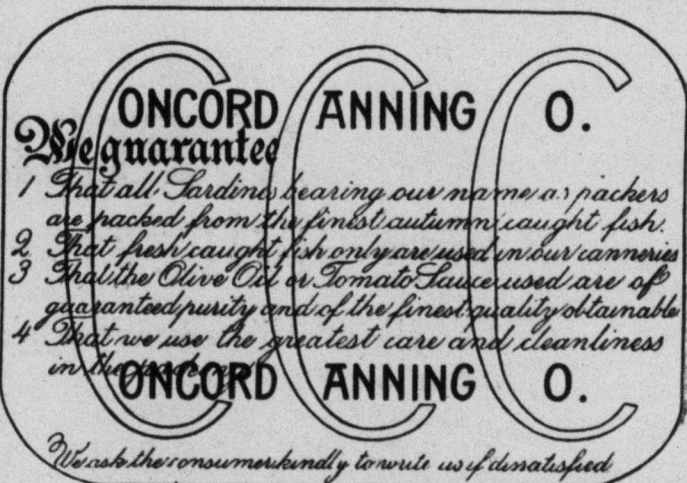 CONCORD CANNING CO.
We guarantee
1 That all Sardines bearing our name as packers
are packed from the finest autumn caught fish.
2 That fresh caught fish only are used in our canneries
3 That the Olive Oil or Tomato Sauce used are of
guaranteed purity and of the finest quality obtainable
4 That we use the greatest care and cleanliness
in the
CONCORD CANNING CO.
We ask the consumer kindly to write us if dissatisfied